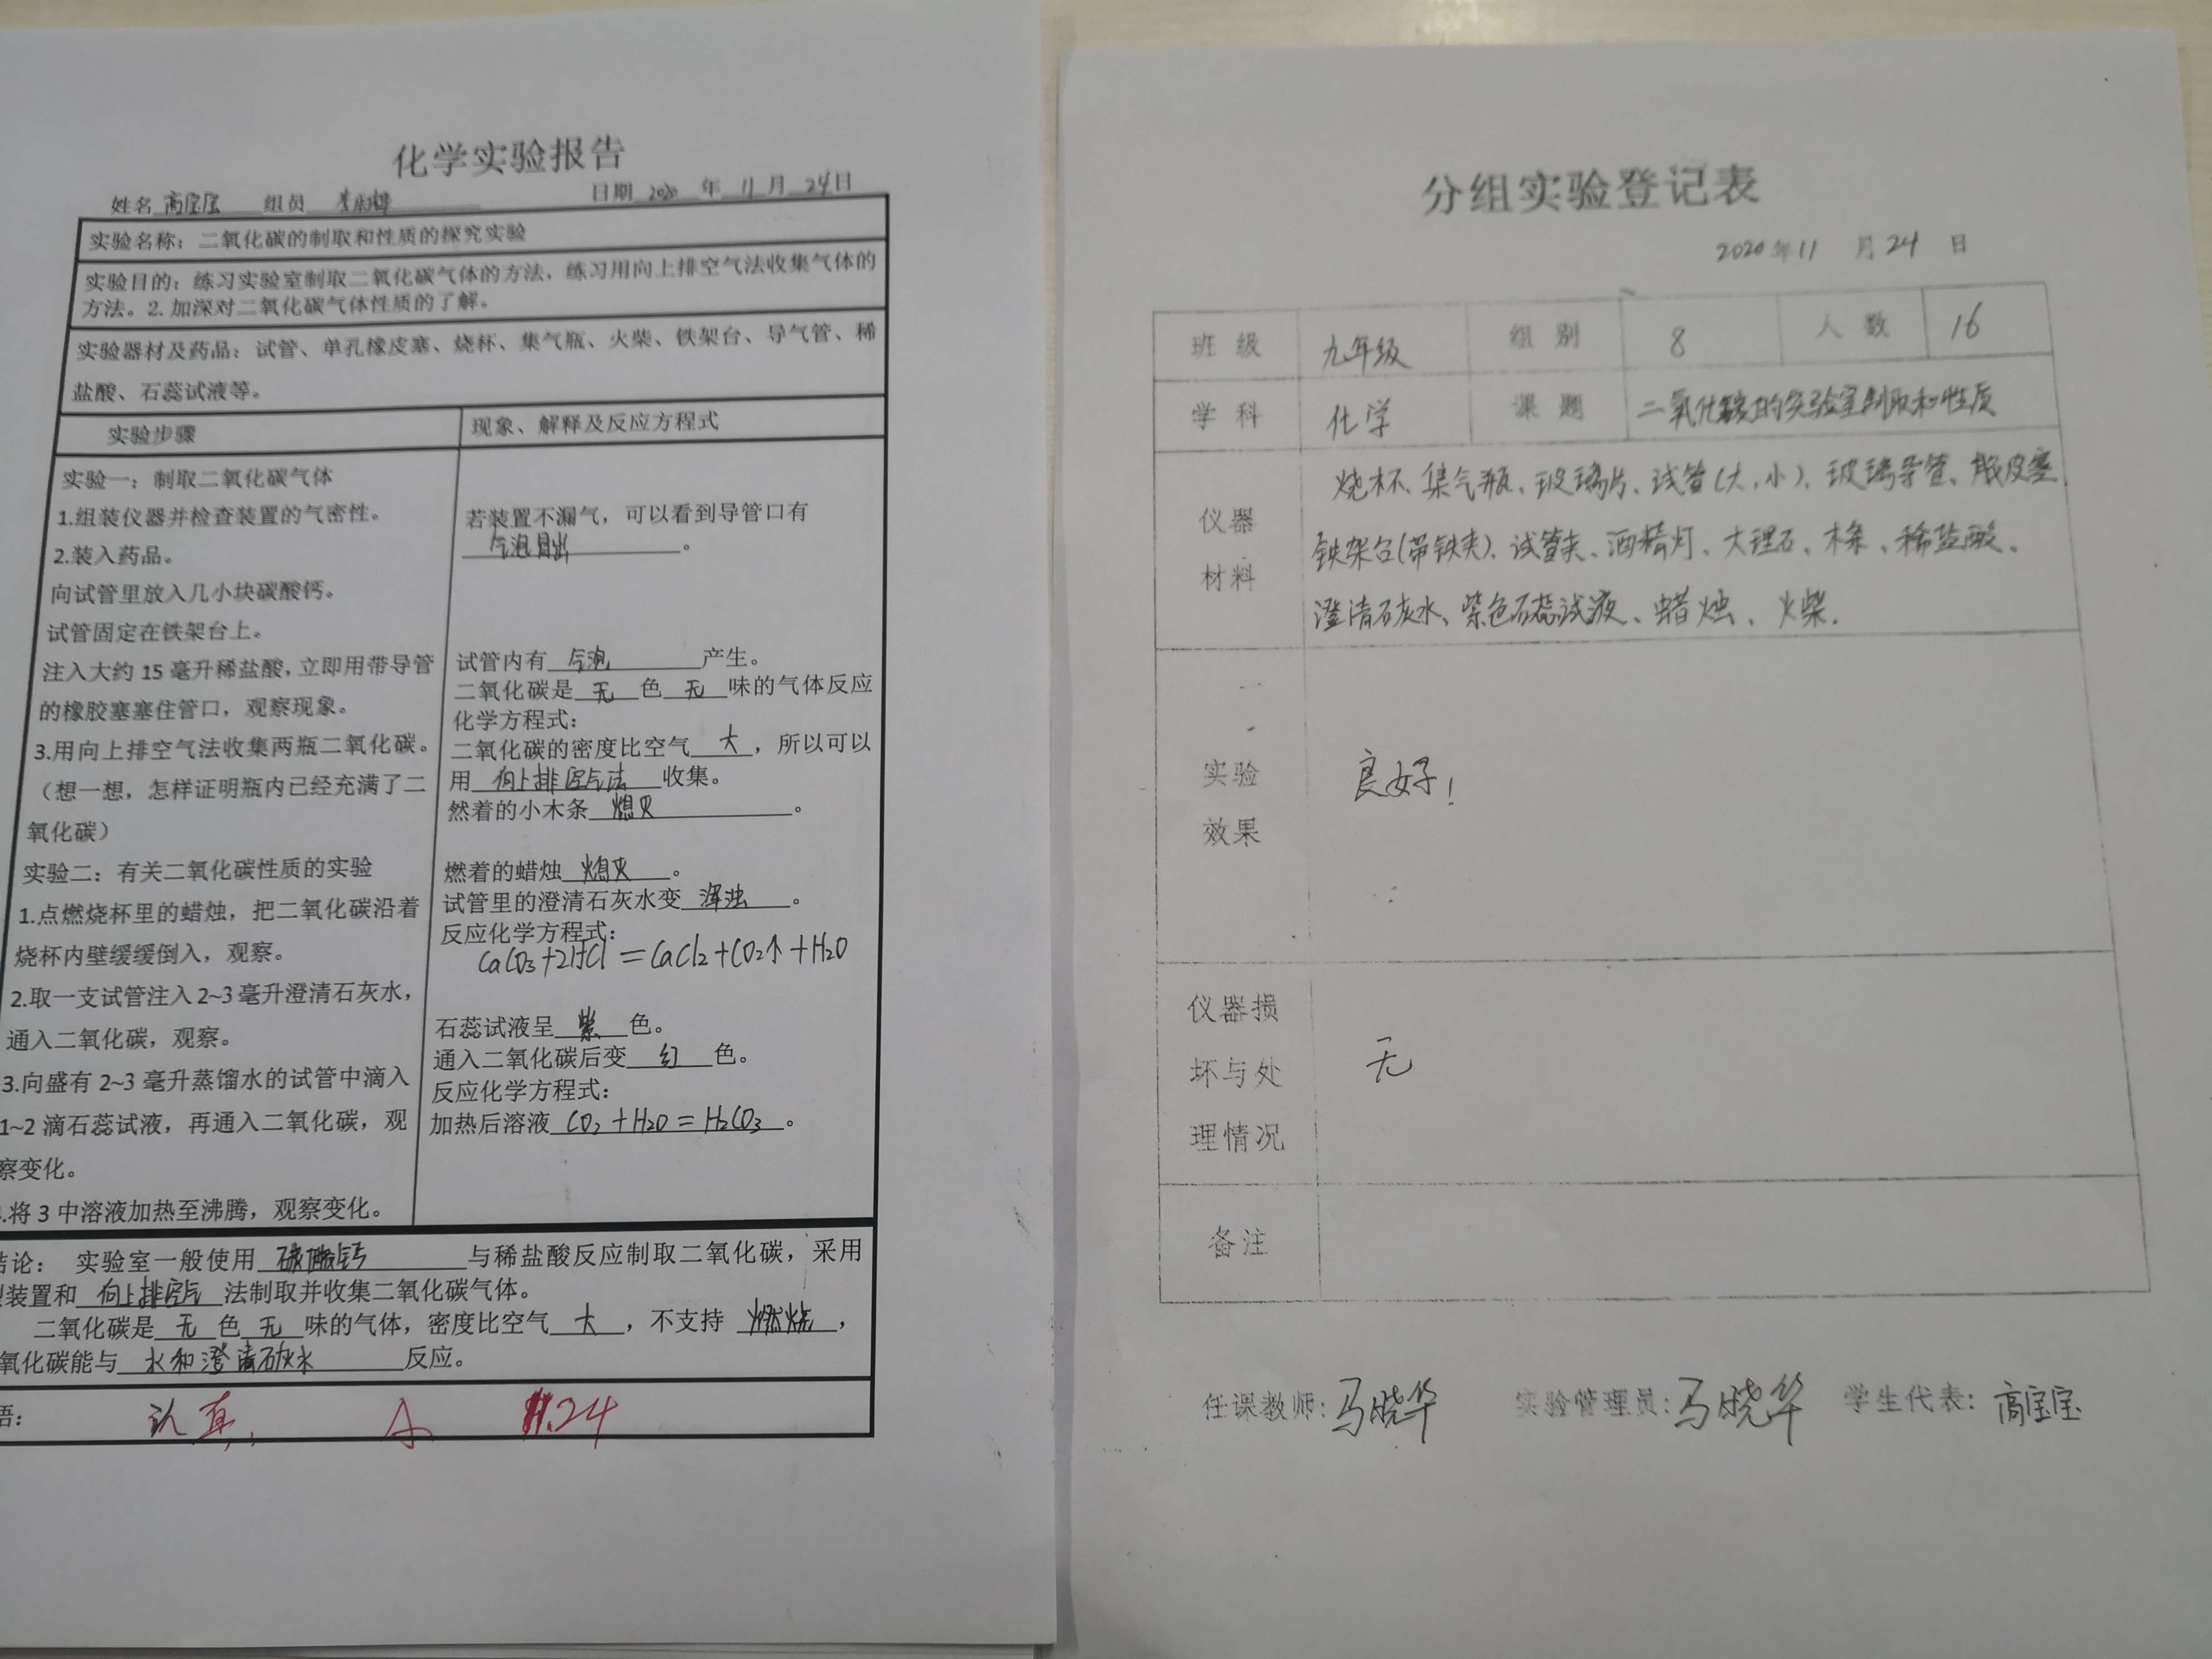 化学实验报告
姓名 高宝宝 组员 日期 2020 年 11 月 24 日
实验名称：二氧化碳的制取和性质的探究实验
实验目的：练习实验室制取二氧化碳气体的方法，练习用向上排空气法收集气体的
方法。2. 加深对二氧化碳气体性质的了解。
实验器材及药品：试管、单孔橡皮塞、烧杯、集气瓶、火柴、铁架台、导气管、稀
盐酸、石蕊试液等。
实验步骤
实验一：制取二氧化碳气体
1.组装仪器并检查装置的气密性。
2.装入药品。
向试管里放入几小块碳酸钙。
试管固定在铁架台上。
注入大约 15 毫升稀盐酸，立即用带导管
的橡胶塞塞住管口，观察现象。
3.用向上排空气法收集两瓶二氧化碳。
（想一想，怎样证明瓶内已经充满了二
氧化碳）
实验二：有关二氧化碳性质的实验
1.点燃烧杯里的蜡烛，把二氧化碳沿着
烧杯内壁缓缓倒入，观察。
2.取一支试管注入 2~3 毫升澄清石灰水，
通入二氧化碳，观察。
3.向盛有 2~3 毫升蒸馏水的试管中滴入
1~2 滴石蕊试液，再通入二氧化碳，观
察变化。
.将 3 中溶液加热至沸腾，观察变化。
现象、解释及反应方程式
若装置不漏气，可以看到导管口有
气泡冒出。
试管内有 气泡 产生。
二氧化碳是 无 色 无 味的气体反应
化学方程式：
二氧化碳的密度比空气 大 ，所以可以
用 向上排空气法 收集。
然着的小木条 熄灭 。
燃着的蜡烛 熄灭 。
试管里的澄清石灰水变 浑浊 。
反应化学方程式：
CaCO₃+2HCl=CaCl₂+CO₂↑+H₂O
石蕊试液呈 紫 色。
通入二氧化碳后变 红 色。
反应化学方程式：
加热后溶液 CO₂+H₂O=H₂CO₃ 。
结论： 实验室一般使用 碳酸钙 与稀盐酸反应制取二氧化碳，采用
装置和 向上排空气 法制取并收集二氧化碳气体。
二氧化碳是 无 色 无 味的气体，密度比空气 大 ，不支持 燃烧 ，
氧化碳能与 水和澄清石灰水 反应。
语： 认真. A 11.24
分组实验登记表
2020 年 11 月 24 日
班级 九年级 组别 8 人数 16
学科 化学 课题 二氧化碳的实验室制取和性质
仪器材料
烧杯、集气瓶、玻璃片、试管(大,小)、玻璃导管、胶皮塞.
铁架台(带铁夹)、试管夹、酒精灯、大理石、木条、稀盐酸、
澄清石灰水、紫色石蕊试液、蜡烛、火柴.
实验效果 良好!
仪器损坏与处理情况 无
备注
任课教师: 马晓华 实验管理员: 马晓华 学生代表: 高宝宝